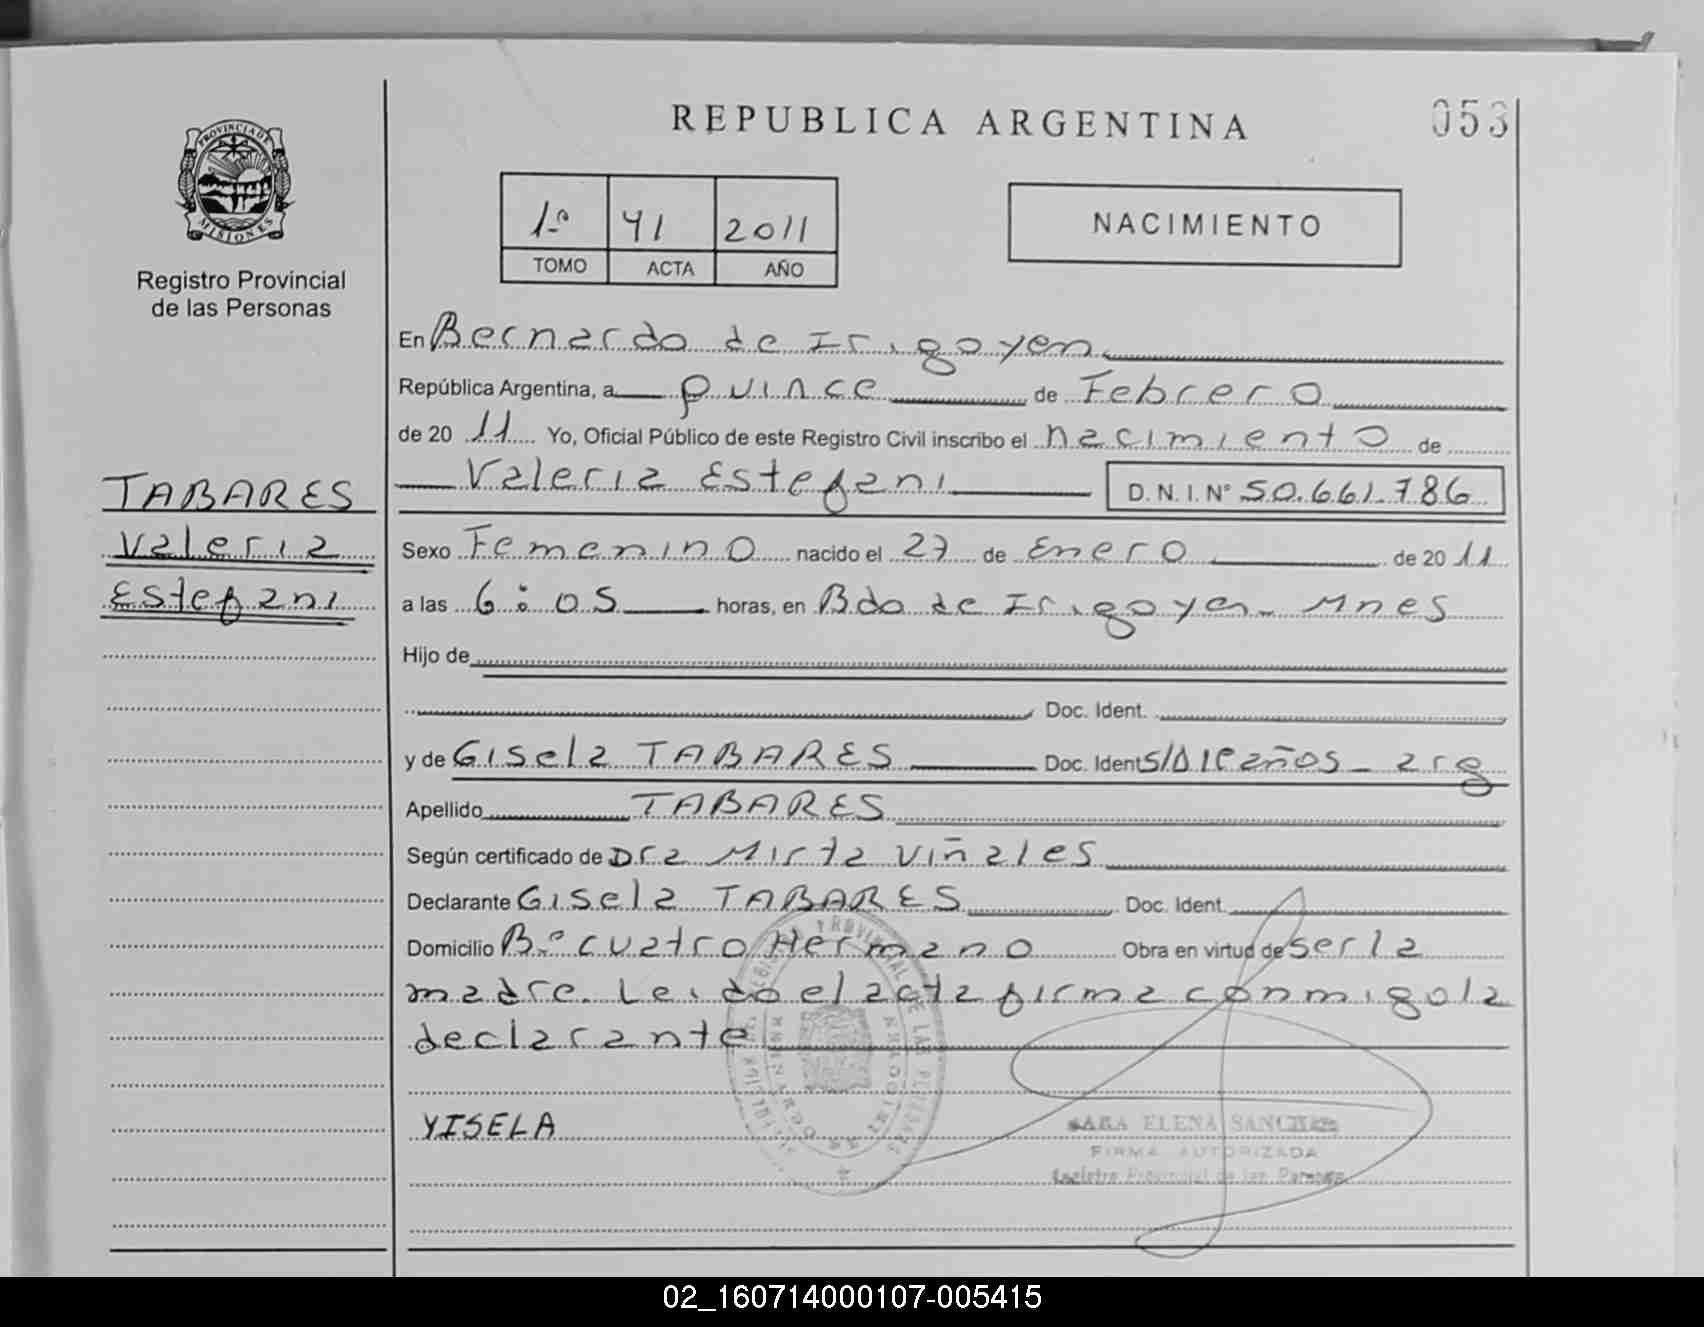 REPUBLICA ARGENTINA
053
PROVINCIA DE
MISIONES
Registro Provincial
de las Personas
1º 41 2011
TOMO ACTA AÑO
NACIMIENTO
En Bernardo de Irigoyen
República Argentina, a quince de Febrero
de 20 11 Yo, Oficial Público de este Registro Civil inscribo el nacimiento de
Valeria Estefani D.N.I. Nº 50.661.786
TABARES
Valeria
Estefani
Sexo Femenino nacido el 27 de Enero de 20 11
a las 6:05 horas, en Bdo de Irigoyen - Mnes
Hijo de
Doc. Ident.
y de Gisela TABARES Doc. Ident S/D años - arg
Apellido TABARES
Según certificado de Dra Mirta Viñales
Declarante Gisela TABARES Doc. Ident.
Domicilio Bº Cuatro Hermano Obra en virtud de ser la
madre. Leido el acta firma conmigo la
declarante
YISELA
SARA ELENA SANCHEZ
FIRMA AUTORIZADA
Registro Provincial de las Personas
02_160714000107-005415